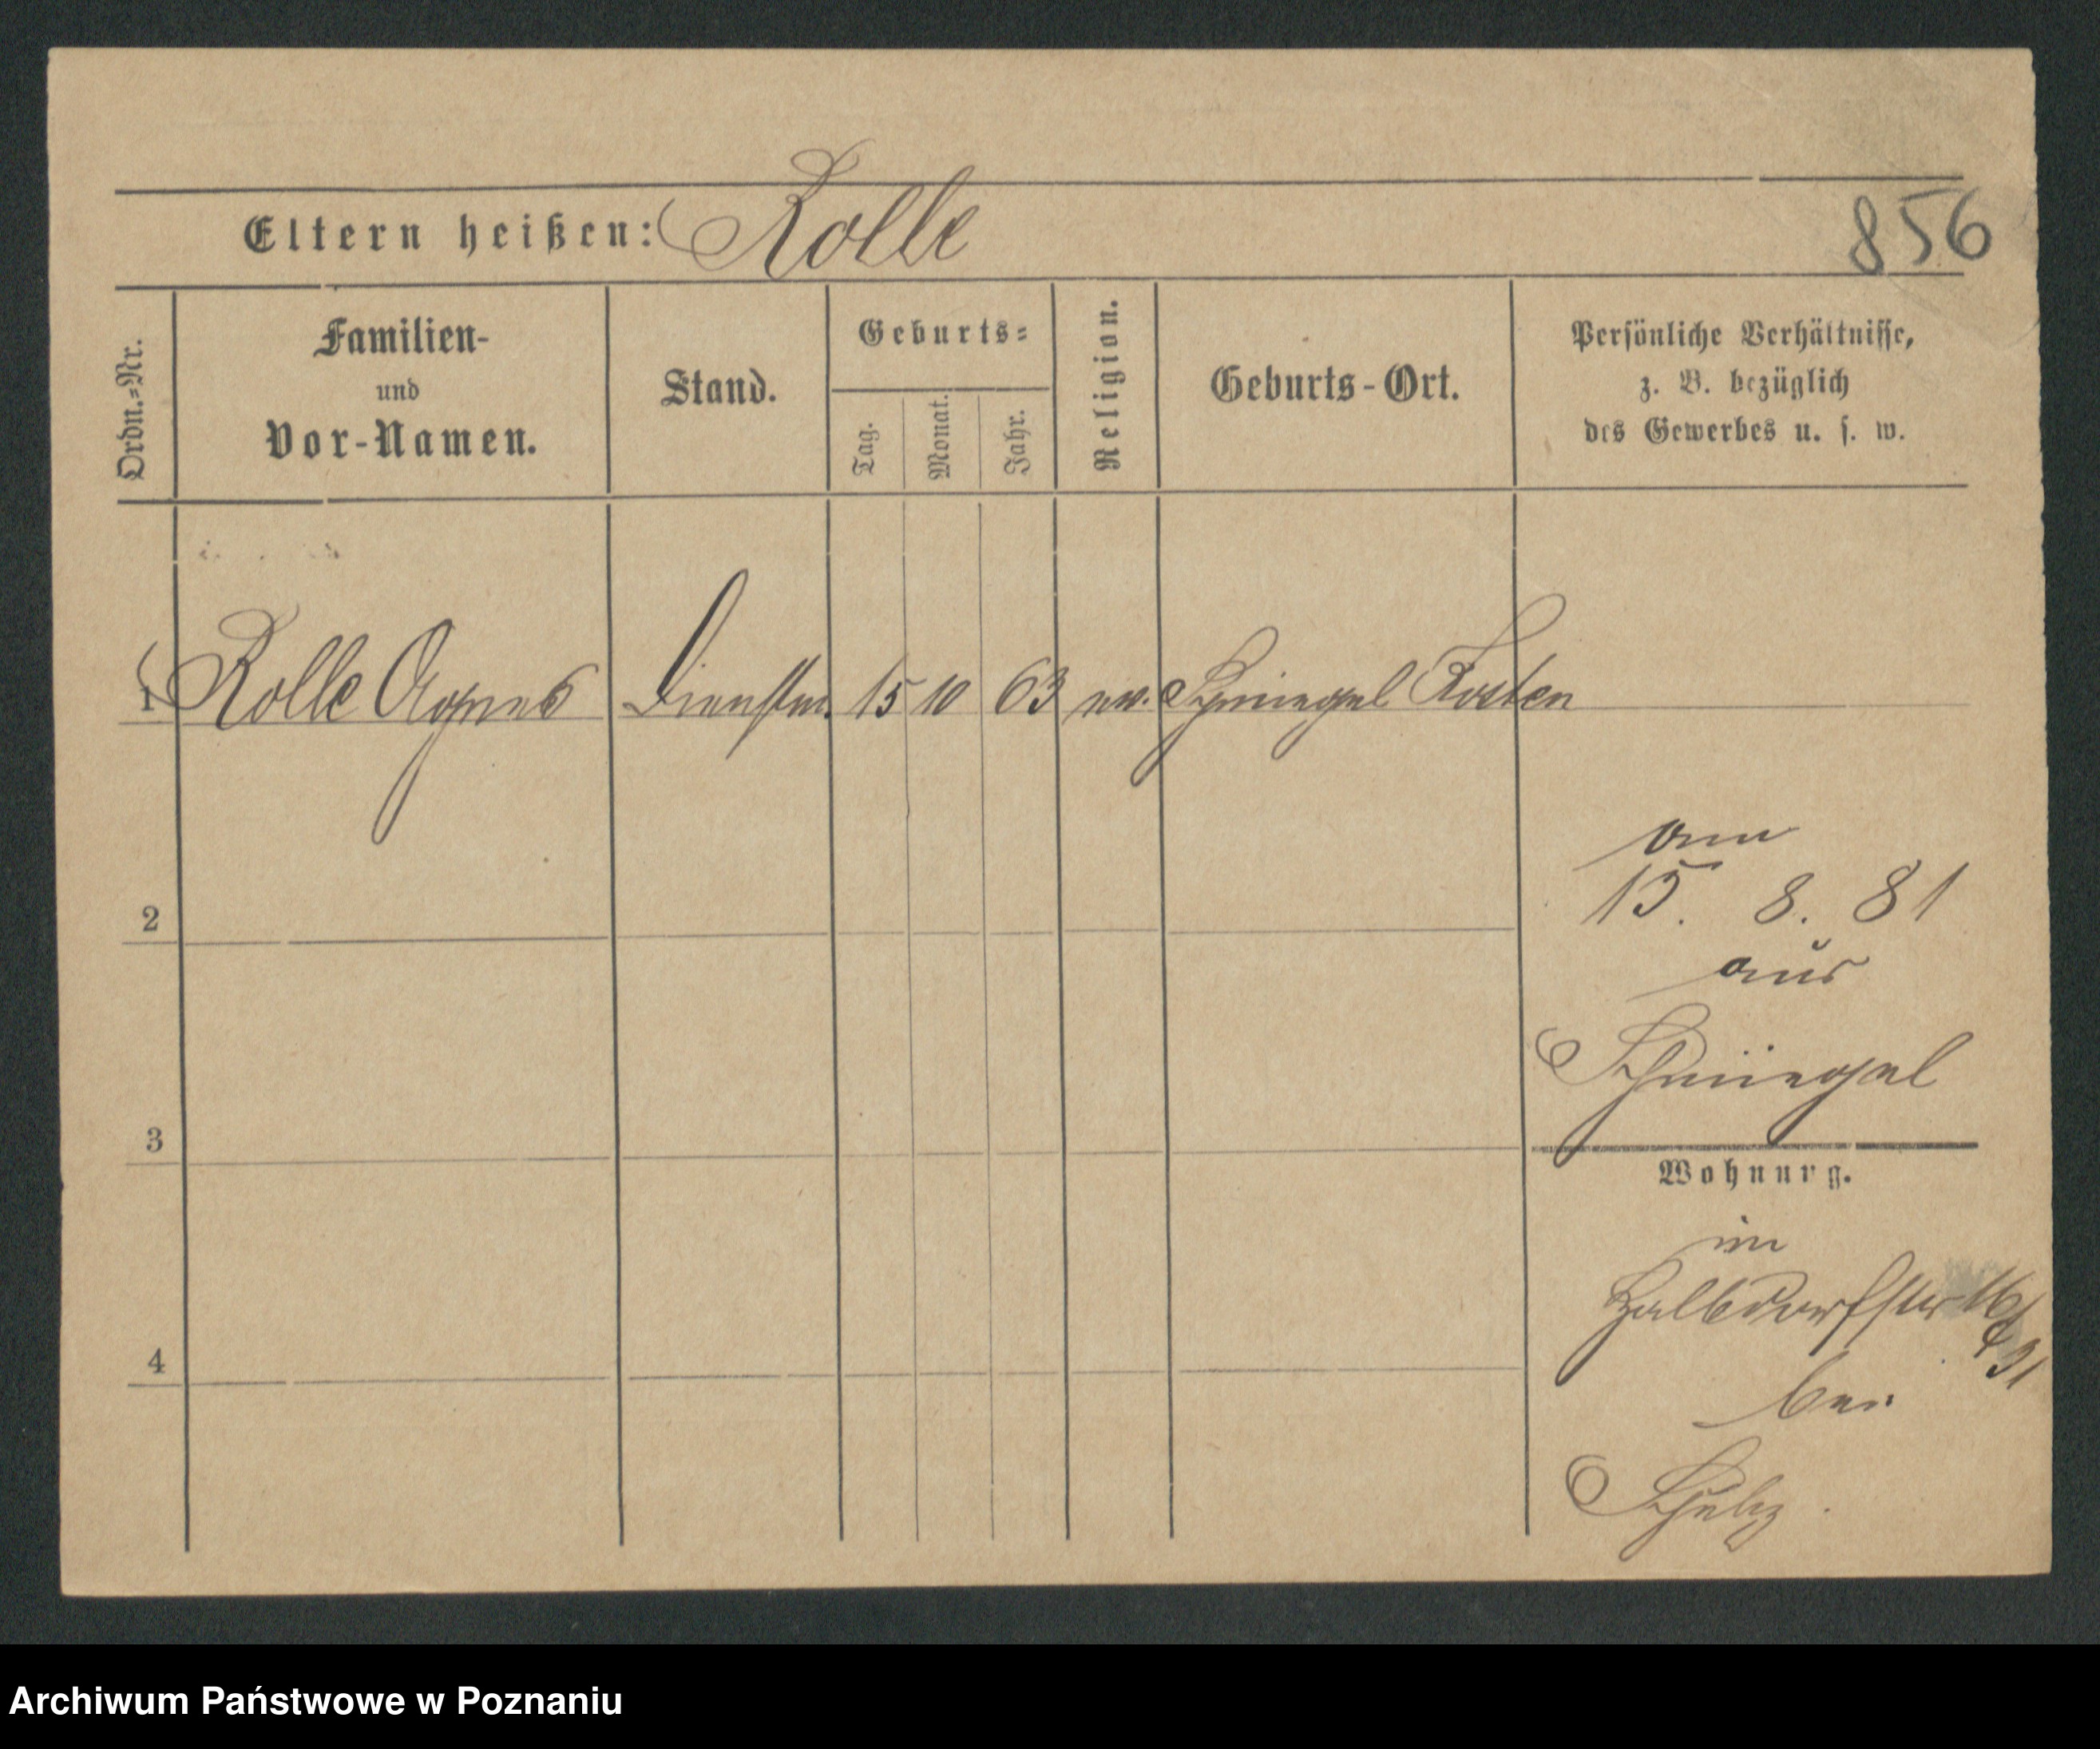 Eltern heißen: Rolle
856
Ordn.=Nr.
Familien-
und
Vor-Namen.
Stand.
Geburts=
Tag.
Monat.
Jahr.
Religion.
Geburts-Ort.
Persönliche Verhältnisse,
z. B. bezüglich
des Gewerbes u. s. w.
1 Rolle Agnes Dienstm. 15 10 63 ev. Schmiegel Kosten
am
15. 8. 81
aus
Schmiegel
2
3
4
Wohnung.
in
Halbdorfstr 16/
bei
Schulz.
Archiwum Państwowe w Poznaniu